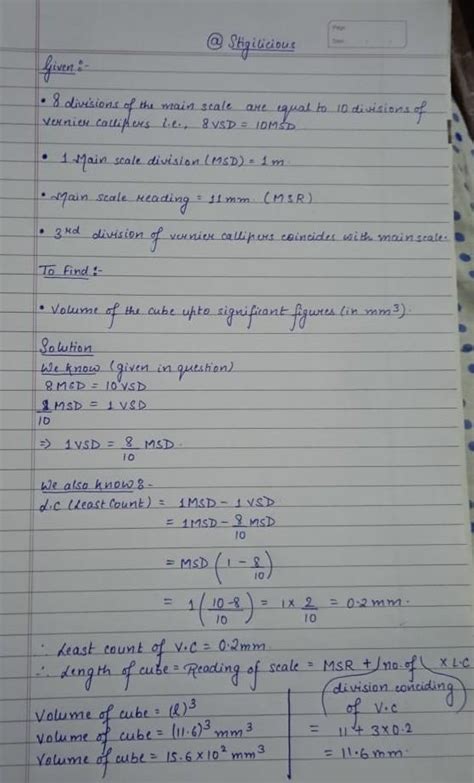 @ Stigilicious
Page:
Date:
Given:-
• 8 divisions of the main scale are equal to 10 divisions of
vernier callipers i.e., 8VSD = 10MSD
• 1 Main scale division (MSD) = 1 m.
• Main scale reading = 11 mm. (MSR)
• 3rd division of vernier callipers coincides with main scale.
To find:-
• Volume of the cube upto significant figures (in mm³).
Solution
We know (given in question)
8 MSD = 10 VSD
8/10 MSD = 1 VSD
⇒ 1 VSD = 8/10 MSD.
We also know:-
L.C (Least Count) = 1MSD - 1VSD
= 1MSD - 8/10 MSD
= MSD (1 - 8/10)
= 1 (10-8/10) = 1 x 2/10 = 0.2 mm.
∴ Least count of V.C = 0.2mm.
∴ Length of cube = Reading of scale = MSR + (no. of division conciding of V.C) x L.C
= 11 + 3 x 0.2
= 11.6 mm.
Volume of cube = (l)³
Volume of cube = (11.6)³ mm³
Volume of cube = 15.6 x 10² mm³